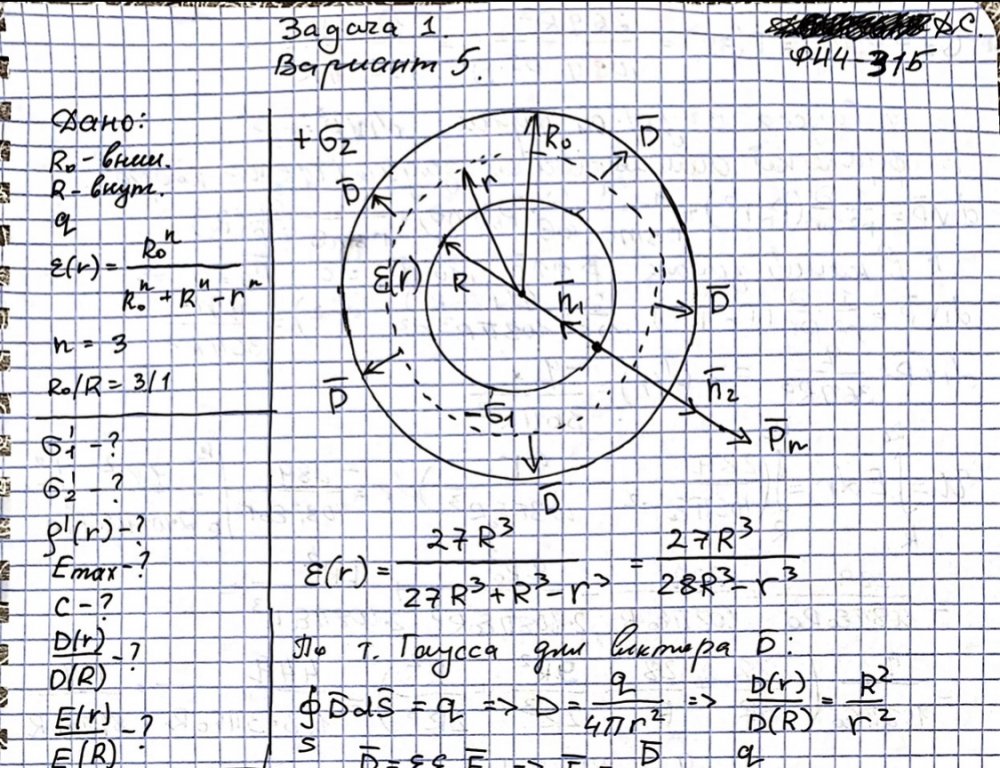 Задача 1.
Вариант 5.
ДС.
ФН4-31Б
Дано:
R₀ - внеш.
R - внут.
q
ε(r) = R₀ⁿ / (R₀ⁿ + Rⁿ - rⁿ)
n = 3
R₀/R = 3/1
σ₁' - ?
σ₂' - ?
ρ'(r) - ?
Emax - ?
C - ?
D(r)/D(R) - ?
E(r)/E(R) - ?
+σ₂'
R₀
D̅
D̅
r
ε(r)
R
n̅₁
D̅
D̅
-σ₁'
n̅₂
P̅n
D̅
ε(r) = 27R³ / (27R³ + R³ - r³) = 27R³ / (28R³ - r³)
По т. Гаусса для вектора D:
∮ D̅dS̅ = q => D = q / 4πr² => D(r)/D(R) = R²/r²
S
D̅ = εε E̅ => E = D̅ q